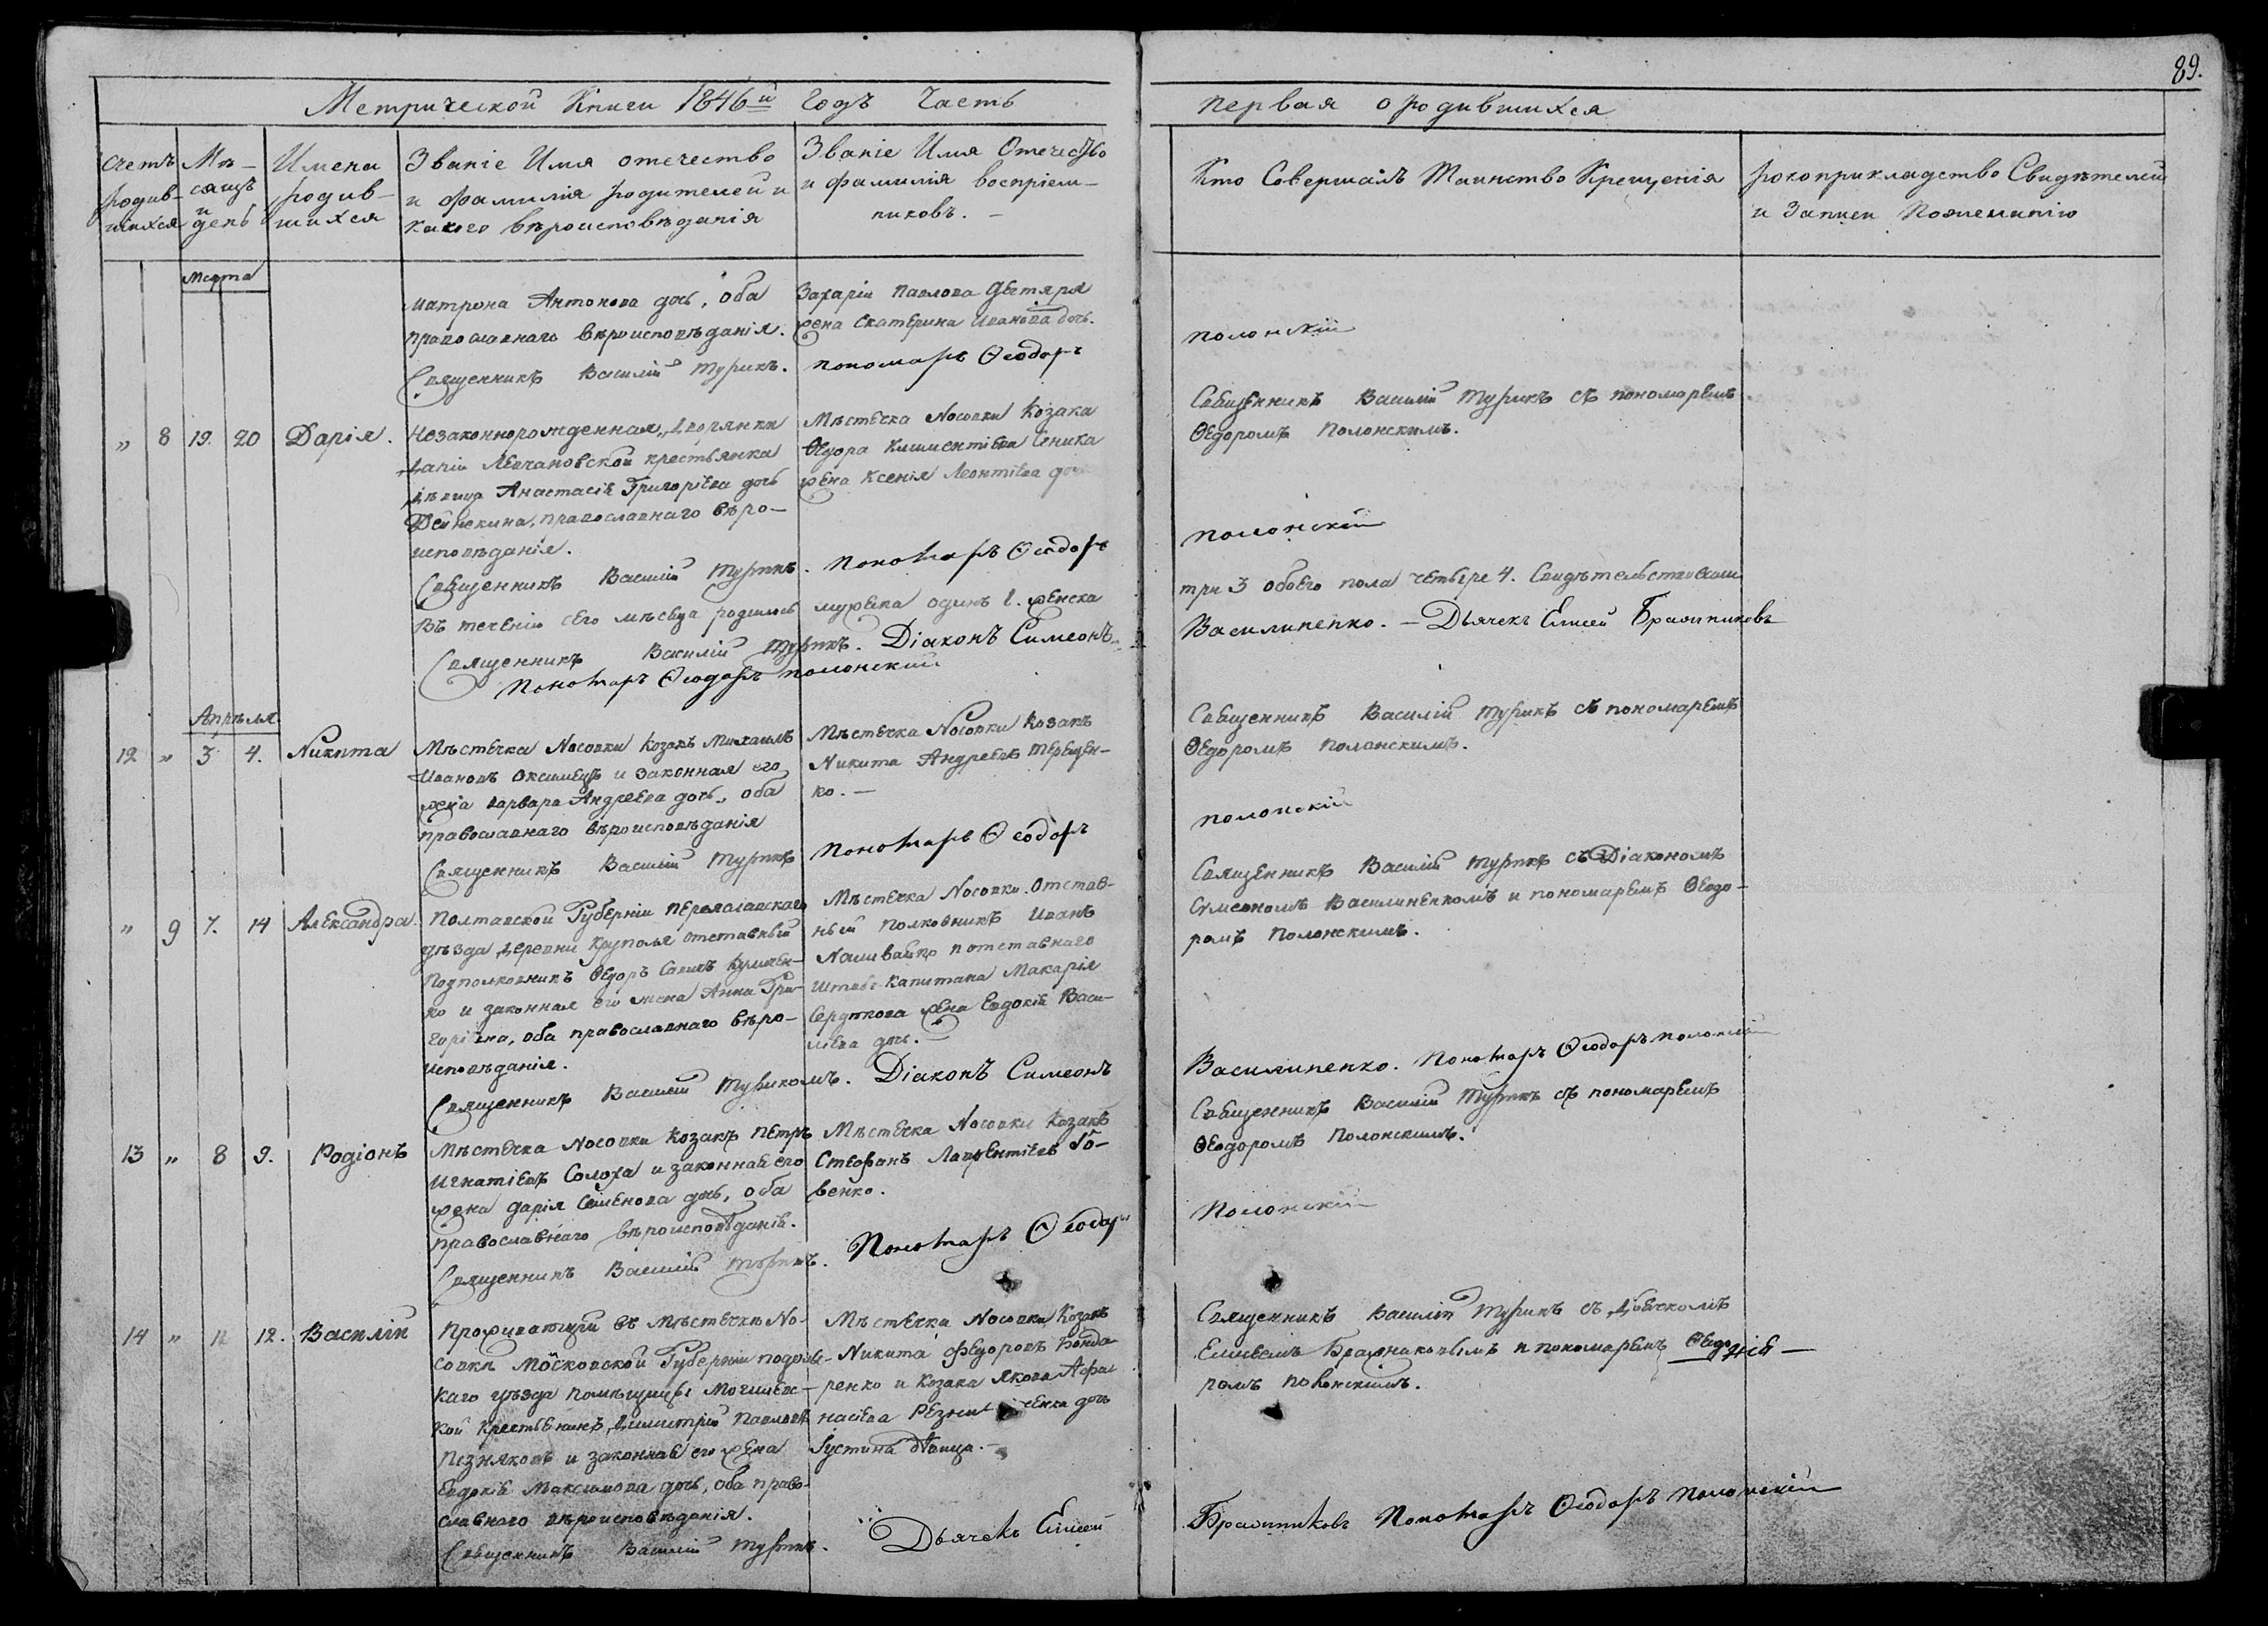 89.
Метрической Книги 1846й Годъ Часть
первая о родившихся
Счетъ родив- шихся
Мѣ- сяцъ и день
Имена родив- шихся
Званіе Имя отечество
и фамилія родителей и
какого вѣроисповѣданія
Званіе Имя Отечество
и фамилія воспріем-
никовъ. —
Кто Совершалъ Таинство Крещенія
рокоприкладство Свидѣтелей
и Записи
Марта
матрона Антонова дочь, оба
православнаго вѣроисповѣданія.
Священникъ Василій Турикъ.
Захарія Павлова Дегтяря
жена Екатерина Иванова дочь.
пономарь Ѳеодоръ
полонскій
„ 8 19. 20 Дарія.
Незаконнорожденная, дворянки
крестьянка
дѣвица Анастасія Григоріева дочь
православнаго вѣро-
исповѣданія.
Священникъ Василій Турикъ.
Мѣстечка Носовки Козака
Ѳедора Климентіева
жена Ксенія Леонтіева дочь
Пономарь Ѳеодоръ
Священникъ Василій Турикъ съ пономаремъ
Ѳедоромъ Полонскимъ.
полонскій
Въ теченіи сего мѣсеца родилось мужеска одинъ 1. женска
три 3 обоего пола четыре 4. Свидѣтельствовали
Священникъ Василій Турикъ. Діаконъ Симеонъ
Василиненко. — Дьячекъ Елисей Бражниковъ
Пономарь Ѳеодоръ полонскій
Апрѣля.
12 „ 3 4. Никита
Мѣстечка Носовки Козакъ Михаилъ
Ивановъ и законная его
жена варвара Андреева дочь, оба
православнаго вѣроисповѣданія
Священникъ Василій Турикъ
Мѣстечка Носовки Козакъ
Никита Андреевъ Терещен-
ко. —
Пономарь Ѳеодоръ
Священникъ Василій Турикъ съ пономаремъ
Ѳедоромъ Полонскимъ.
полонскій
„ 9 7. 14 Александра.
Полтавской Губерніи переяславскаго
уѣзда, деревни Круполя отставный
Подполковникъ Ѳедоръ Савичъ
ко и законная его жена Анна Гри-
горіевна, оба православнаго вѣро-
исповѣданія.
Священникъ Василій Турикомъ.
Мѣстечка Носовки. Отстав-
ный полковникъ Иванъ
Наливайко и отставнаго
Штабс-Капитана Макарія
Сердюкова жена Евдокія Васи-
лиева дочь. —
Діаконъ Симеонъ
Священникъ Василій Турикъ съ Діакономъ
Сумеономъ Василиненкомъ и пономаремъ Ѳеодо-
ромъ Полонскимъ.
Василиненко. Пономарь Ѳеодоръ полонскій
13 „ 8 9. Родіонъ
Мѣстечка Носовки Козакъ Петръ
Игнатіевъ Солоха и законная его
жена дарія Семенова дочь, оба
православнаго вѣроисповѣданія.
Священникъ Василій Турикъ.
Мѣстечка Носовки Козакъ
Стефанъ Лаврентіевъ Го-
венко.
Пономарь Ѳеодоръ
Священникъ Василій Турикъ съ пономаремъ
Ѳеодоромъ Полонскимъ.
Полонскій
14 „ 11 12. Василій
Проживающій въ мѣстечкѣ Но-
совки Московской Губерніи подоль-
скаго уѣзда помѣщицы
кой крестьянинъ, Димитрій Павловъ
Позняковъ и законная его жена
Евдокія Максимова дочь, оба право-
славнаго вѣроисповѣданія.
Священникъ Василій Турикъ.
Мѣстечка Носовки Козакъ
Никита Ѳедоровъ Бонда-
ренко и Козака Якова Афа-
насіева дочь
Іустина дѣвица. —
Дьячекъ Елисей
Священникъ Василій Турикъ съ Дьячкомъ
Елисеемъ Бражниковымъ и пономаремъ Ѳеодо-
ромъ полонскимъ.
Бражниковъ Пономарь Ѳеодоръ полонскій